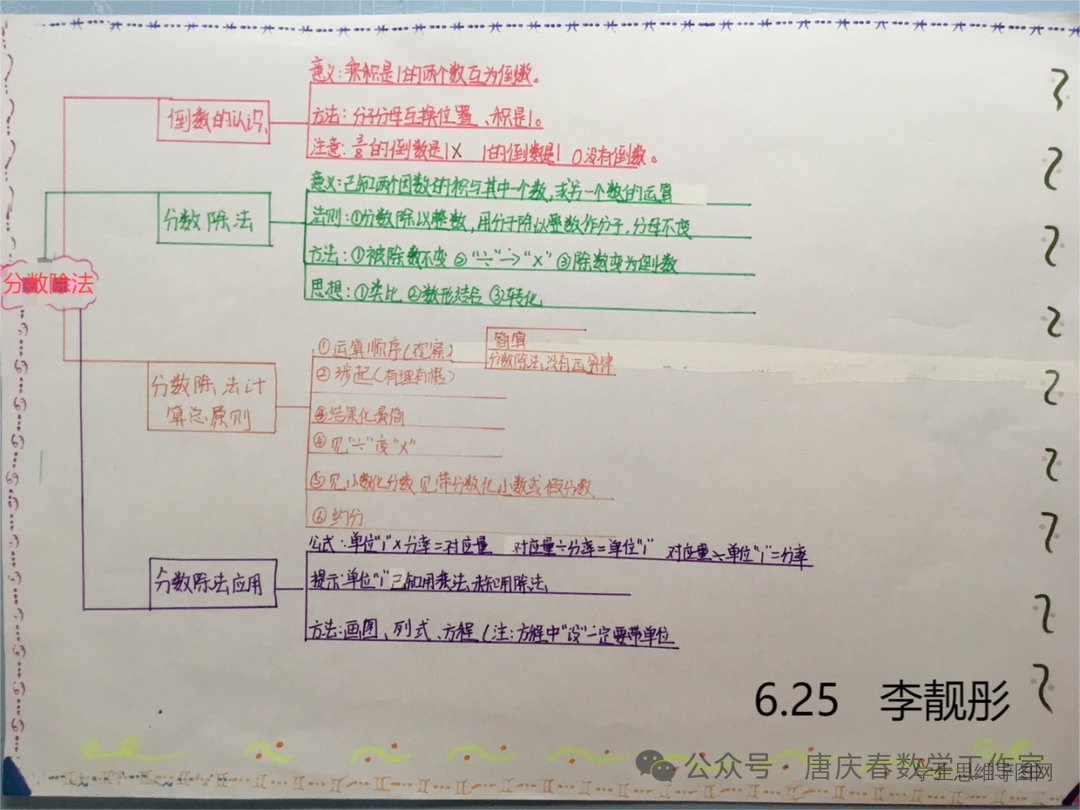 意义:乘积是1的两个数互为倒数。
倒数的认识
方法:分子分母互换位置、积是1。
注意:3/8的倒数是1× 1的倒数是1 0没有倒数。
意义:已知两个因数的积与其中一个数,求另一个数的运算
分数除法
法则:①分数除以整数,用分子除以整数作分子,分母不变
方法:①被除数不变②“÷”→“×”③除数变为倒数
思想:①类比 ②数形结合 ③转化
分数除法
①运算顺序(观察)
简算
分数除法,没有运算律
②抄起(有理有据)
分数除法计
算总原则
③结果化最简
④见“÷”变“×”
⑤见小数化分数 见带分数化小数或假分数
⑥约分
公式:单位“1”×分率=对应量 对应量÷分率=单位“1” 对应量÷单位“1”=分率
分数除法应用
提示:单位“1”已知用乘法,未知用除法
方法:画图、列式、方程(注:方程中“设”一定要带单位
6.25 李靓彤
公众号·唐庆春数学工作室
学生思维导图网